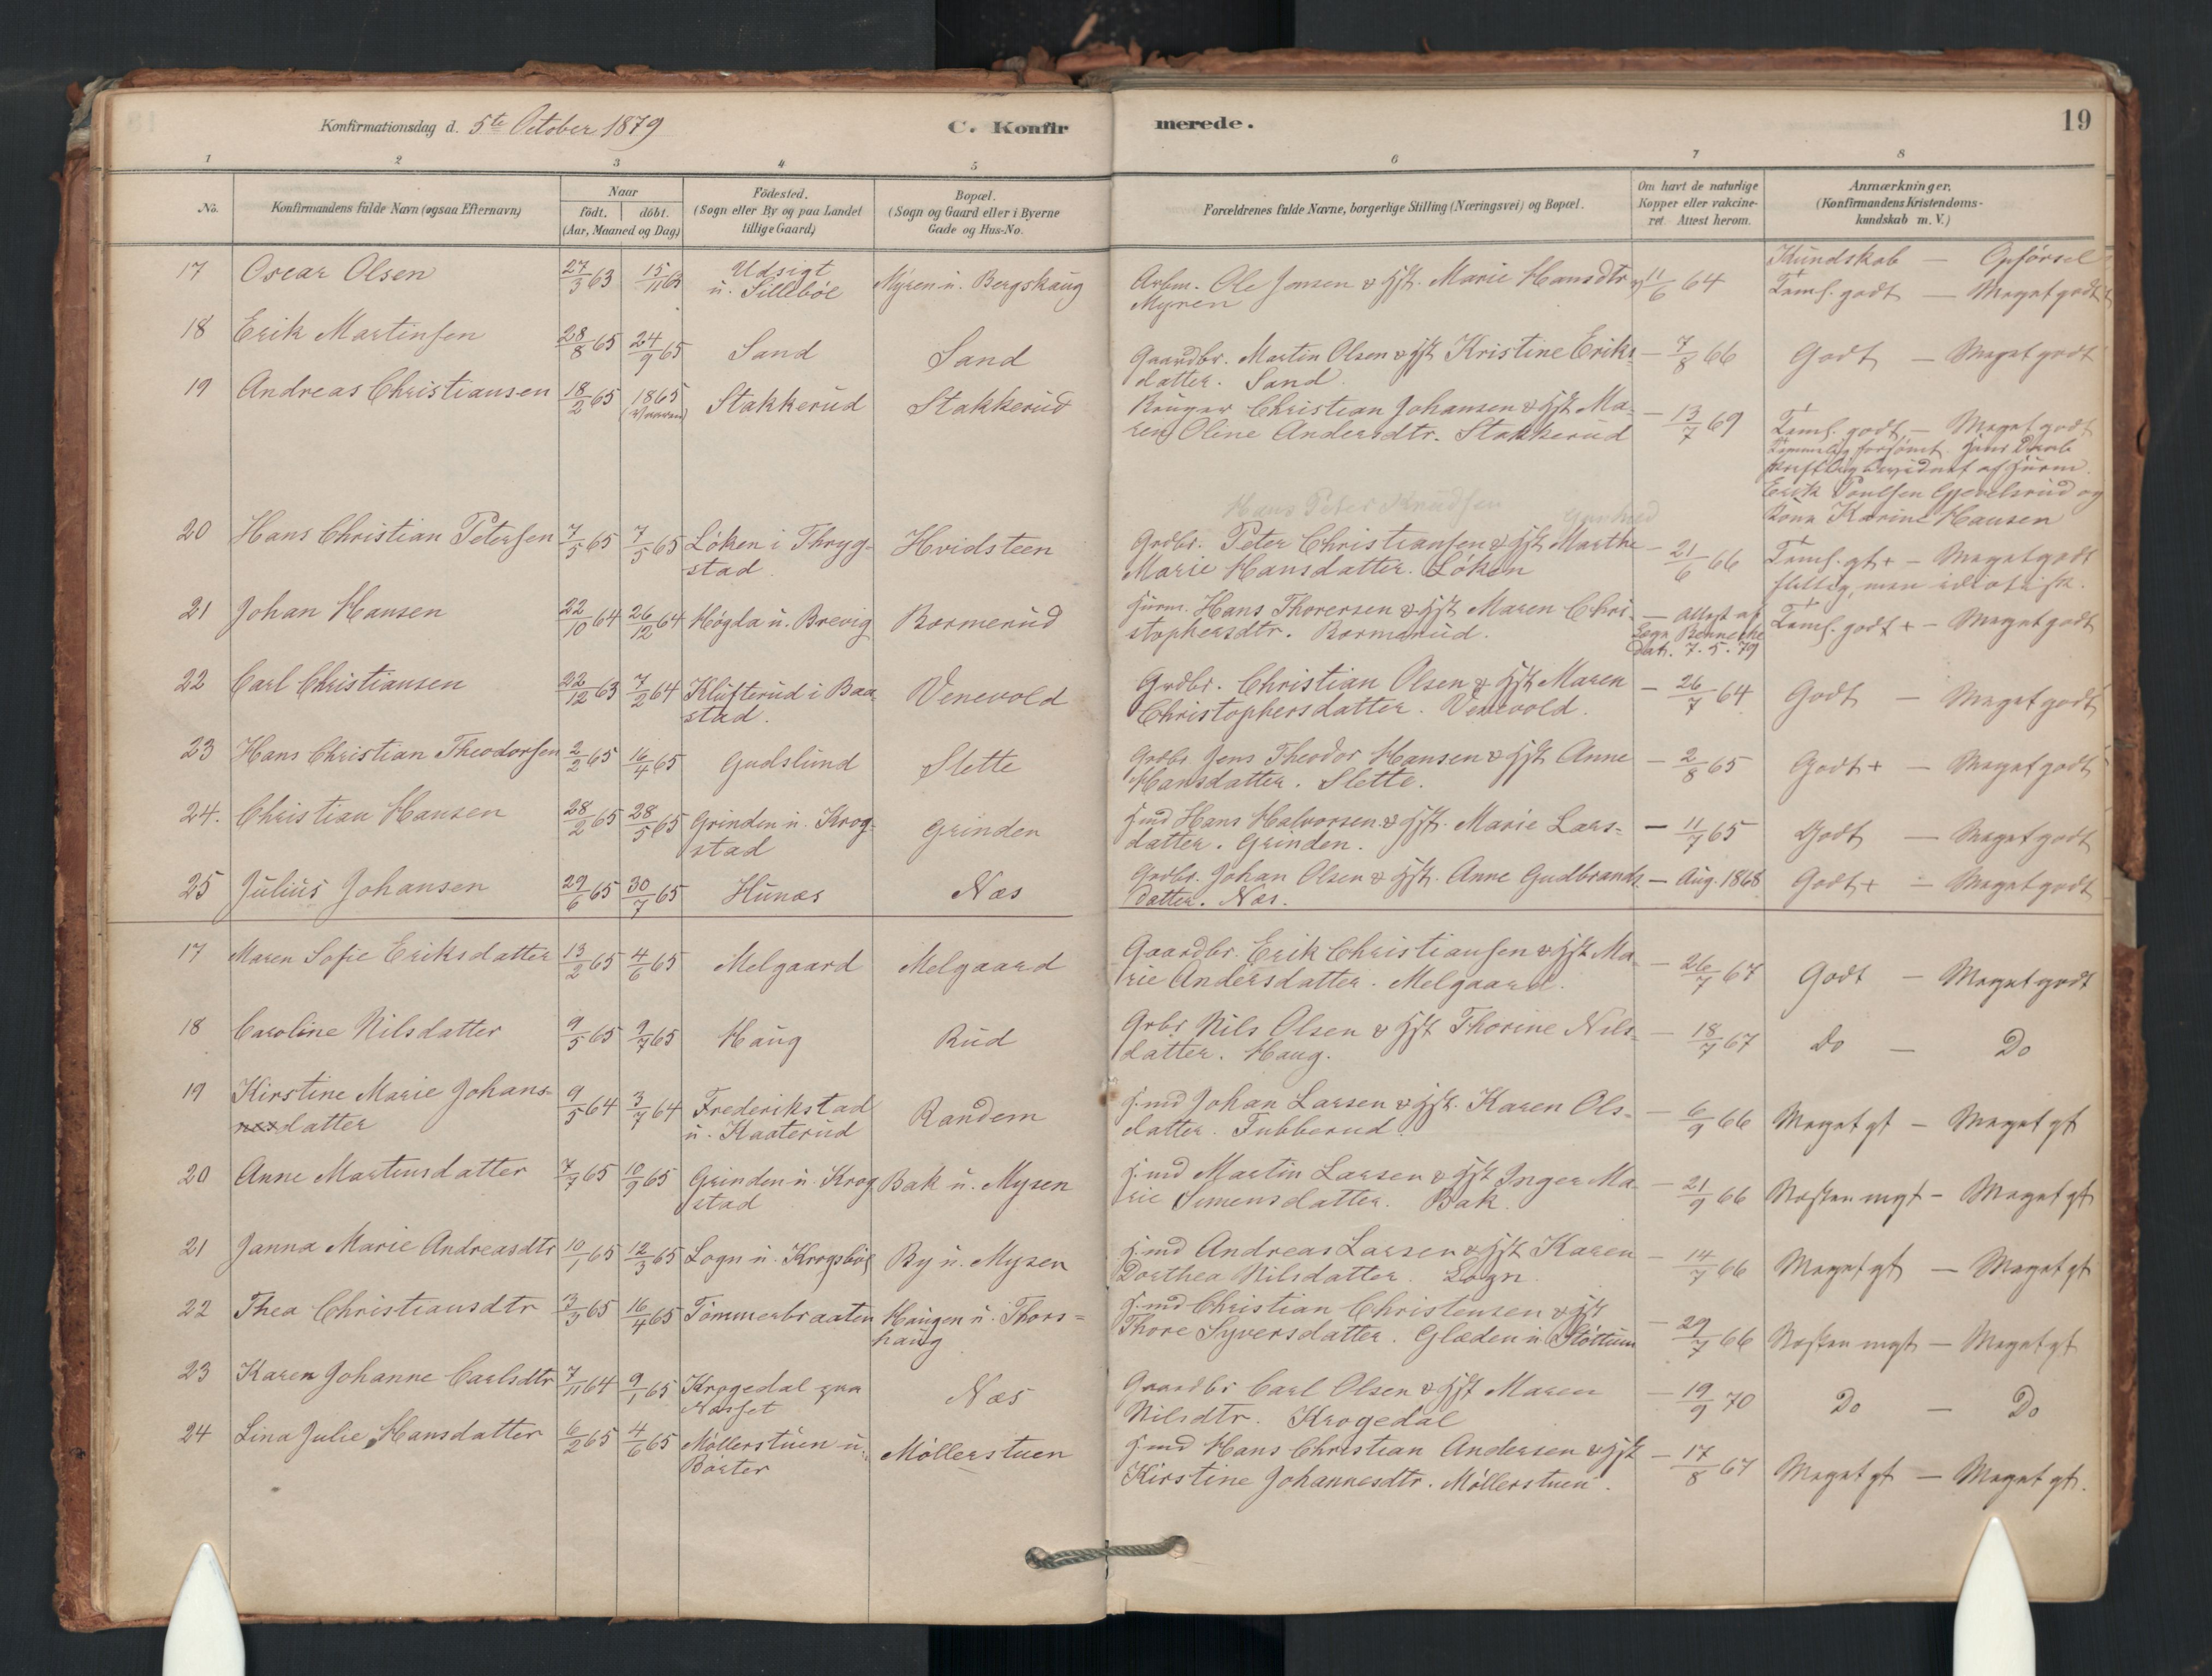 Konfirmationsdag d. 5te October 1879
C. Konfirmerede.
19
1 2 3 4 5 6 7 8
No.
Konfirmandens fulde Navn (ogsaa Efternavn)
Naar
födt. döbt.
(Aar, Maaned og Dag)
Födested.
(Sogn eller By og paa Landet
tillige Gaard)
Bopæl.
(Sogn og Gaard eller i Byerne
Gade og Hus-No.
Forældrenes fulde Navne, borgerlige Stilling (Næringsvei) og Bopæl.
Om havt de naturlige
Kopper eller vakcine-
ret. Attest herom.
Anmærkninger,
(Konfirmandens Kristendoms-
kundskab m. V.)
Kundskab — Opførsel
17 Oscar Olsen 27/3 63 15/11 63 Udsigt
u. Sillebøl Myren u. Bergskaug Arbm. Ole Jensen & Hst. Marie Hansdtr
Myren 11/6 64 Teml. godt — Meget godt
18 Erik Martinsen 28/8 65 24/9 65 Sand Sand Gaardbr. Martin Olsen & Hst Kristine Eriks-
datter. Sand — 7/8 66 Godt — Meget godt
19 Andreas Christiansen 18/2 65 1865
(Vaaren) Stakkerud Stakkerud Bruger Christian Johansen & Hst Ma-
ren Oline Andersdtr. Stakkerud — 13/7 69 Teml. godt — Meget godt
Temmelig forsømt. Hans Daab
skriftlig bevidnet af Husm.
Erik Poulsen Gjevelsrud og
Kona Karine Hansen
Hans Peter Knudsen
20 Hans Christian Petersen 7/5 65 7/5 65 Løken i Thryg-
stad Hvidsteen Grdbr. Peter Christiansen & Hst Marthe
Marie Hansdatter. Løken — 21/6 66 Teml. gt + — Meget godt
flittig, men idiotisk.
21 Johan Hansen 22/10 64 26/12 64 Høgda u. Brevig Bormerud Husm. Hans Thorersen & Hst Maren Chri-
stophersdtr. Bormerud. — Attest af
Sogn. Bennecke
dat. 7.5.79 Teml. godt + — Meget godt
22 Carl Christiansen 22/12 63 7/2 64 Klufterud i Baa-
stad. Venevold Grdbr. Christian Olsen & Hst Maren
Christophersdatter. Venevold. — 26/7 64 Godt — Meget godt
23 Hans Christian Theodorsen 2/2 65 16/4 65 Gudslund Slette Grdbr. Jens Theodor Hansen & Hst Anne
Hansdatter. Slette. — 2/8 65 Godt + — Meget godt
24. Christian Hansen 28/2 65 28/5 65 Grinden u. Krog-
stad Grinden Hmd Hans Halvorsen & Hst. Marie Lars-
datter. Grinden. — 11/7 65 Godt — Meget godt
25 Julius Johansen 29/6 65 30/7 65 Hunæs Næs Grdbr. Johan Olsen & Hst. Anne Gudbrands
datter. Næs. — Aug. 1868 Godt + — Meget godt
17 Maren Sofie Eriksdatter 13/2 65 4/6 65 Melgaard Melgaard Gaardbr. Erik Christiansen & Hst Ma-
rie Andersdatter. Melgaard. — 26/7 67 Godt — Meget godt
18 Caroline Nilsdatter 9/5 65 9/7 65 Haug Rud Grbr. Nils Olsen & Hst Thorine Nils-
datter. Haug. — 18/7 67 Do — Do
19 Kirstine Marie Johans-
datter 9/5 64 3/7 64 Frederikstad
u. Kaaterud Randem Hmd Johan Larsen & Hst. Karen Ols-
datter. Tubberud. — 6/9 66 Meget gt — Meget gt
20 Anne Martinsdatter 7/7 65 10/9 65 Grinden u. Krog
stad Bak u. Mysen Hmd Martin Larsen & Hst Inger Ma-
rie Simensdatter. Bak. — 21/9 66 Næsten mgt — Meget gt
21 Janna Marie Andreasdtr 10/1 65 12/3 65 Logn u. Krogsbøl By u. Mysen Hmd Andreas Larsen & Hst Karen
Dorthea Nilsdatter. Logn. — 14/7 66 Meget gt — Meget gt
22 Thea Christiansdtr 3/3 65 16/4 65 Tømmerbraaten Haugen u. Thors=
haug Hmd Christian Christensen & Hst
Thore Syversdatter. Glæden u. Støttum — 29/7 66 Næsten mgt — Meget gt
23 Karen Johanne Carlsdtr 7/11 64 9/1 65 Krogedal paa
Næsset Næs Gaardbr Carl Olsen & Hst Maren
Nilsdtr. Krogedal — 19/9 70 Do — Do
24 Lina Julie Hansdatter 6/2 65 4/6 65 Møllerstuen u.
Børter Møllerstuen Hmd Hans Christian Andersen & Hst
Kirstine Johannesdtr. Møllerstuen. — 17/8 67 Meget gt — Meget gt.